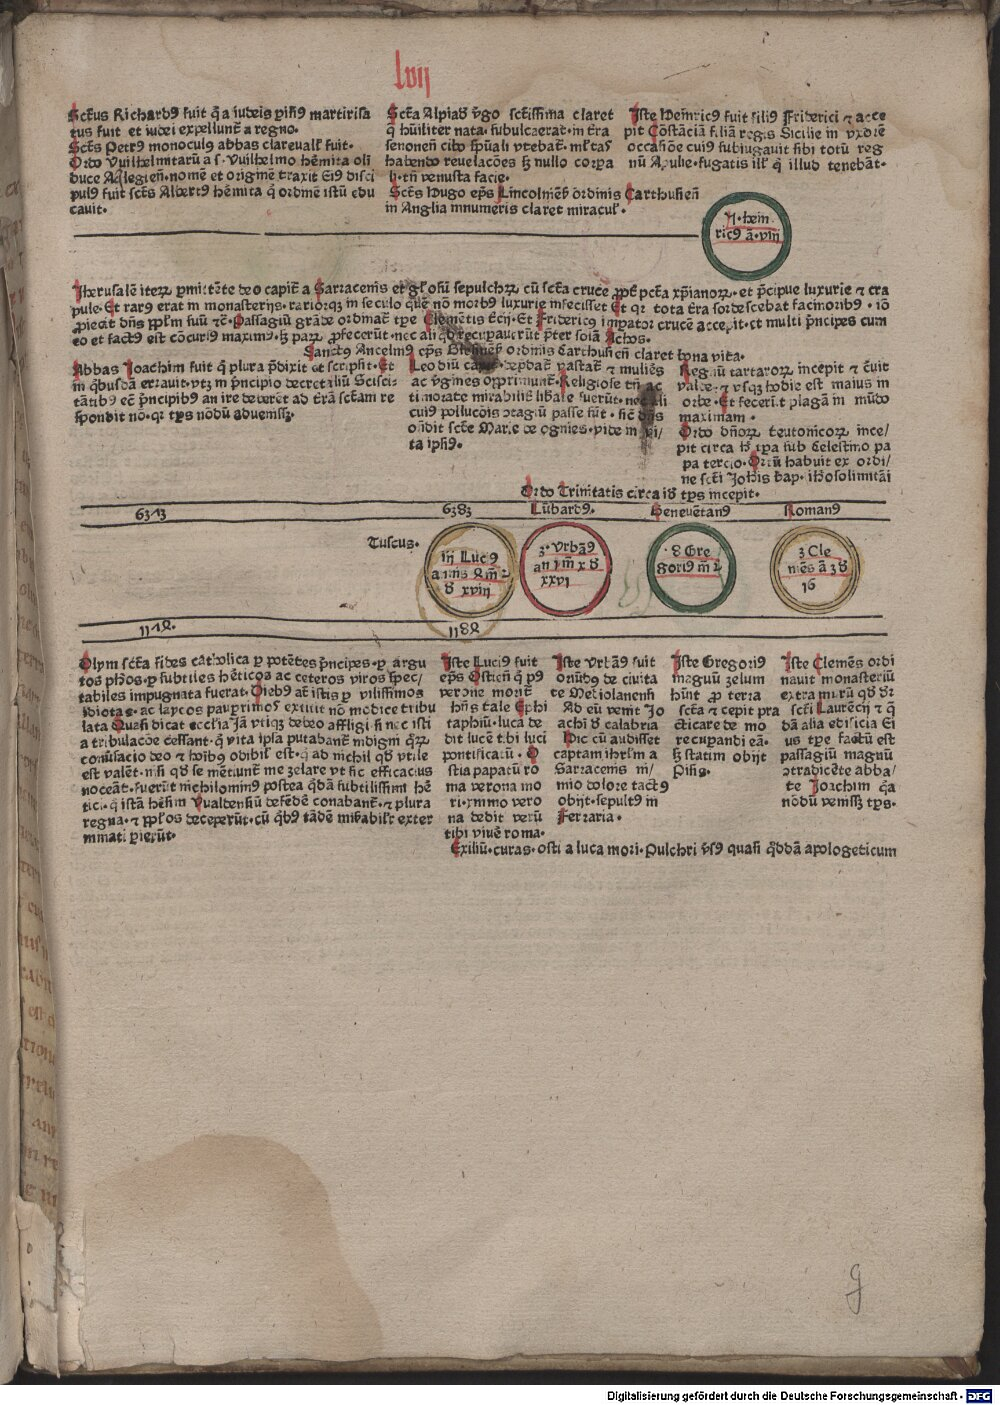 lvij
Sctꝰus Richardꝰ fuit q̄ a iudeis pͥsiꝰ martirisa
tus fuit et iudei expellunt̄ a regno.
Sctꝰs Petrꝰ monoculꝰ abbas clareuall̄ fuit.
Ordo Vuilhelmitarū a s. Vuilhelmo he̅mita oli
duce Aq̄legien̄. nome̅ et origine̅ traxit Eiꝰ disci
pulꝰ fuit sctꝰs Albertꝰ he̅mita q̄ ordine̅ istū edu
cauit.
Scta̅ Alpiadꝰ v̄go sctīssima claret
q̄ hūiliter nata. subulcaerat. in t̄ra
senonen̄ cibo sp̄uali vtebat̄. ml̄tas
habendo reuelaco̅es ꝫ nullo corpa
li. tn̄ venusta facie.
Sctꝰs Hugo ep̄s Lincolnien̄ ordinis Carthusien̄
in Anglia innumeris claret miraculꝰ.
Iste Heinricꝰ fuit filiꝰ Friderici ⁊ acce
pit Co̅stācia̅ filiā regis Sicilie in vxore̅
occasio̅e cuiꝰ subiugauit sibi totū reg
nū Apulie. fugatis ill̄ q̄ illud tenebāt.
Ꝛ. hein
ricꝰ ā. viij
Iherusale̅ iteꝝ pmitte̅te deo capit̄ a Sarracenis et gl̄osū sepulchꝝ cū scta̅ cruce ꝓpt̄ pcta̅ xp̄ianoꝝ. et p̄cipue luxurie ⁊ cra
pule. Et rarꝰ erat in monasterijs. rariorqꝫ in seculo que̅ no̅ morbꝰ luxurie infecisset Et qꝛ tota t̄ra sordescebat facinoribꝰ. io̅
ꝓiecit dn̄s ppl̄m suū ⁊c̄. Passagiū gra̅de ordinat̄ tp̄e Cleme̅tis t̄cij. Et Fridericꝰ imꝑator cruce̅ accepit. et multi p̄ncipes cum
eo et factꝰ est co̅cursꝰ maximꝰ. ꝫ paꝝ ꝓfecerūt. nec aliq̄d recupauerūt p̄ter solā Achos.
Sanctꝰ Ancelmꝰ ep̄s ordinis Carthusien̄ claret bona vita.
Abbas Joachim fuit q̄ plura p̄dixit et scripsit. Et
in q̄busdā errauit. vtꝫ in p̄ncipio decretaliū Scisci
ta̅tibꝰ ec̄ p̄ncipibꝰ an ire debere̅t ad t̄rā scta̅m re
spondit no̅. qꝛ tp̄s no̅dū aduenissꝫ.
Leodiū vastat̄ ⁊ mulie̅s
ac v̄gines opprimunt̄. Religiose tn̄ ac
timorate mirabiliꝰ lib̄ate fuerūt. ne ali
cuiꝰ polluco̅is ꝯtagiū passe sūt. sic̄ dn̄s
on̄dit scte̅ Marie de ognies. vide in vi
ta ipsiꝰ.
Regnū tartaroꝝ incepit ⁊ c̄uit
valde. ⁊ vsqꝫ hodie est maius in
orbe. Et fecerūt plagā in mu̅do
maximam.
Ordo dn̄oꝝ teutonicoꝝ ince
pit circa h̄ tp̄a sub Celestino pa
pa tercio. Ortū habuit ex ordi
ne scti̅ Joh̄is bap. ih̄osolimitāi
Ordo Trinitatis circa id̄ tp̄s incepit.
6373 6383 Lūbardꝰ. Beneue̅tanꝰ Romanꝰ
Tuscus.
iij Lucꝰ
annis 4 m̄ 2
d xviij
3. Vrbāꝰ
an j m̄ x d
xxvi
8 Gre
goriꝰ m̄ 2
3 Cle
me̅s ā 3 d
16
1174. 1184
Olym scta̅ fides catholica ꝑ pote̅tes p̄ncipes. ꝑ argu
tos ph̄os. ꝑ subtiles he̅ticos ac ceteros viros spec
tabiles impugnata fuerat. Dieb̄ꝰ at̄ istis ꝑ vilissimos
idiotas. ac laycos pauꝑrimos extitit no̅ modice tribu
lata Quasi dicat eccl̄ia Jā vtiqꝫ debeo affligi. si nec isti
a tribulaco̅e cessant. q̄ vita ipsa putabant̄ indigni q̄ꝝ
co̅uersacio deo ⁊ ho̅ibꝰ odibil̄ est. q̄ ad nichil qd̄ vtile
est vale̅t. nisi qd̄ se me̅tiunt̄ me zelare vt sic efficacius
noceāt. fuerūt nichilominꝰ postea q̄dā subtilissimi he̅
tici. q̄ istā he̅sim Valdensiū defe̅de̅ conabant̄. ⁊ plura
regna. ⁊ ppl̄os deceperūt. cū q̄bꝰ ta̅de̅ mirabilꝛ exter
minati ꝑierūt.
Iste Luciꝰ fuit
ep̄s Ostien̄ q̄ pꝰ
verone morit̄
hn̄s tale Ephi
taphiū. luca de
dit luce̅ tibi luci
pontificatū. O
stia papatū ro
ma verona mo
ri. ymmo vero
na dedit verū
tibi viue̅ roma.
Exiliū. curas. osti a luca mori. Pulchri v̄sꝰ quasi q̄ddā apologeticum
Iste Vrbāꝰ fuit
oriu̅dꝰ de ciuita
te Mediolanen̄
Ad eū venit Jo
achī d̄ calabria
Hic cū audisset
captam ihrl̄m a
Sarracenis ni
mio dolore tactꝰ
obijt. sepultꝰ in
Ferraria.
Iste Gregoriꝰ
magnū zelum
h̄uit ꝓ terra
scta̅ ⁊ cepit pra
cticare de mo
recuꝑandi eā.
ꝫ statim obijt
Pisis.
Iste Cleme̅s ordi
nauit monasteriū
extra murū qd̄ dꝛ
scti̅ Laure̅cij ⁊ q̄
dā alia edificia Ei
us tp̄e factū est
passagiū magnū
ꝯtradice̅te abba
te Joachim q̄a
no̅dū venissꝫ tp̄s.
g
Digitalisierung gefördert durch die Deutsche Forschungsgemeinschaft - DFG